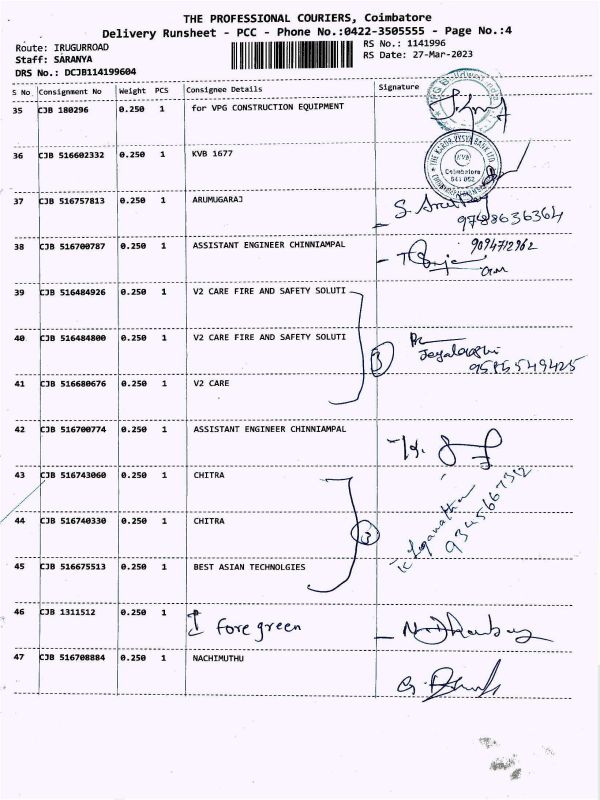 THE PROFESSIONAL COURIERS, Coimbatore
Delivery Runsheet - PCC - Phone No.:0422-3505555 - Page No.:4
Route: IRUGURROAD
Staff: SARANYA
DRS No.: DCJB114199604
RS No.: 1141996
RS Date: 27-Mar-2023
S No Consignment No Weight PCS Consignee Details Signature
35 CJB 180296 0.250 1 for VPG CONSTRUCTION EQUIPMENT
36 CJB 516602332 0.250 1 KVB 1677
KVB
Coimbatore
641 062
37 CJB 516757813 0.250 1 ARUMUGARAJ
9788636364
38 CJB 516700787 0.250 1 ASSISTANT ENGINEER CHINNIAMPAL
9094712962
39 CJB 516484926 0.250 1 V2 CARE FIRE AND SAFETY SOLUTI
40 CJB 516484800 0.250 1 V2 CARE FIRE AND SAFETY SOLUTI
3
41 CJB 516680676 0.250 1 V2 CARE
42 CJB 516700774 0.250 1 ASSISTANT ENGINEER CHINNIAMPAL
43 CJB 516743060 0.250 1 CHITRA
44 CJB 516740330 0.250 1 CHITRA
3
45 CJB 516675513 0.250 1 BEST ASIAN TECHNOLGIES
46 CJB 1311512 0.250 1 fore green
47 CJB 516708884 0.250 1 NACHIMUTHU